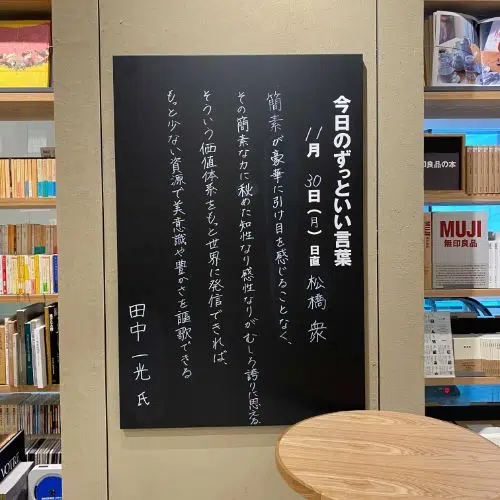 今日のずっといい言葉
11月30日(月) 日直 松橋 衆
簡素が豪華に引け目を感じることなく、
その簡素な力に秘めた知性なり感性なりがむしろ誇りに思える
そういう価値体系をもっと世界に発信できれば、
もっと少ない資源で美意識や豊かさを謳歌できる
田中一光 氏
無印良品の本
MUJI
無印良品